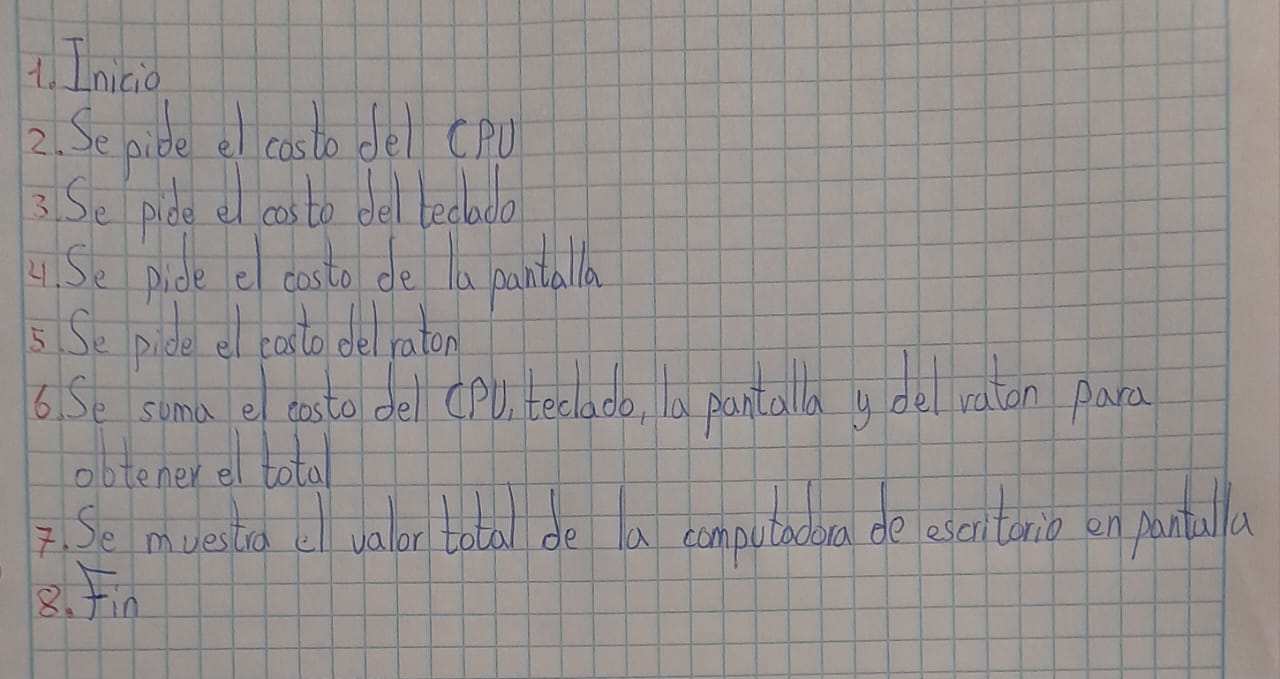 1. Inicio
2. Se pide el costo del CPU
3. Se pide el costo del teclado
4. Se pide el costo de la pantalla
5. Se pide el costo del raton
6. Se suma el costo del CPU, teclado, la pantalla y del raton para
obtener el total
7. Se muestra el valor total de la computadora de escritorio en pantalla
8. Fin